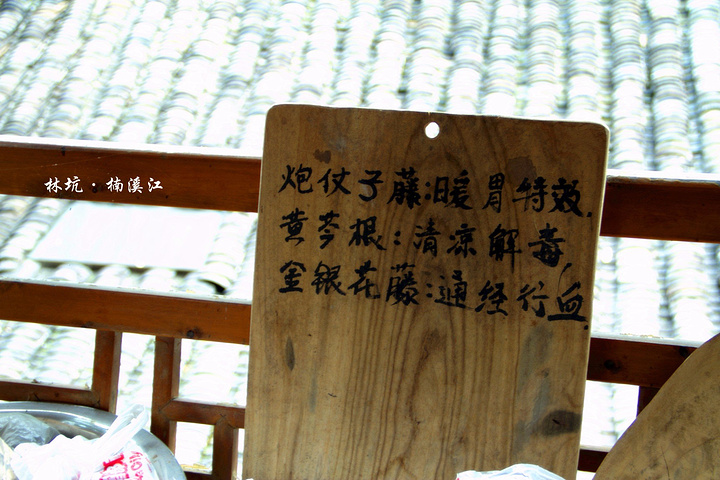 林坑·楠溪江
炮仗子藤:暖胃特效.
黄芩根:清凉解毒,
金银花藤:通经行血.